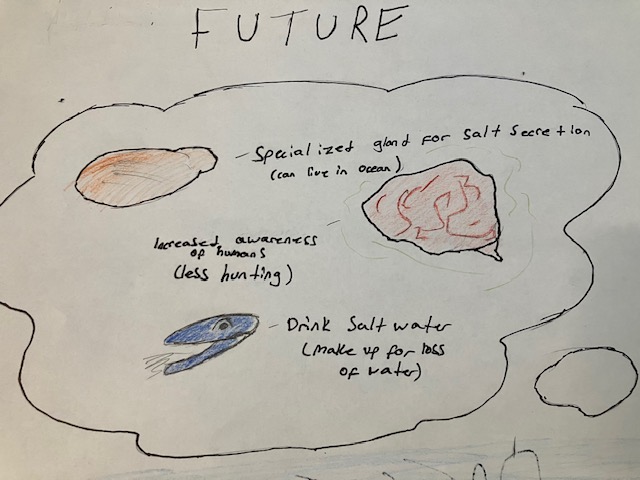 FUTURE
Specialized gland for salt secretion
(can live in ocean)
Increased awareness
of humans
(less hunting)
Drink Salt water
(make up for loss
of water)